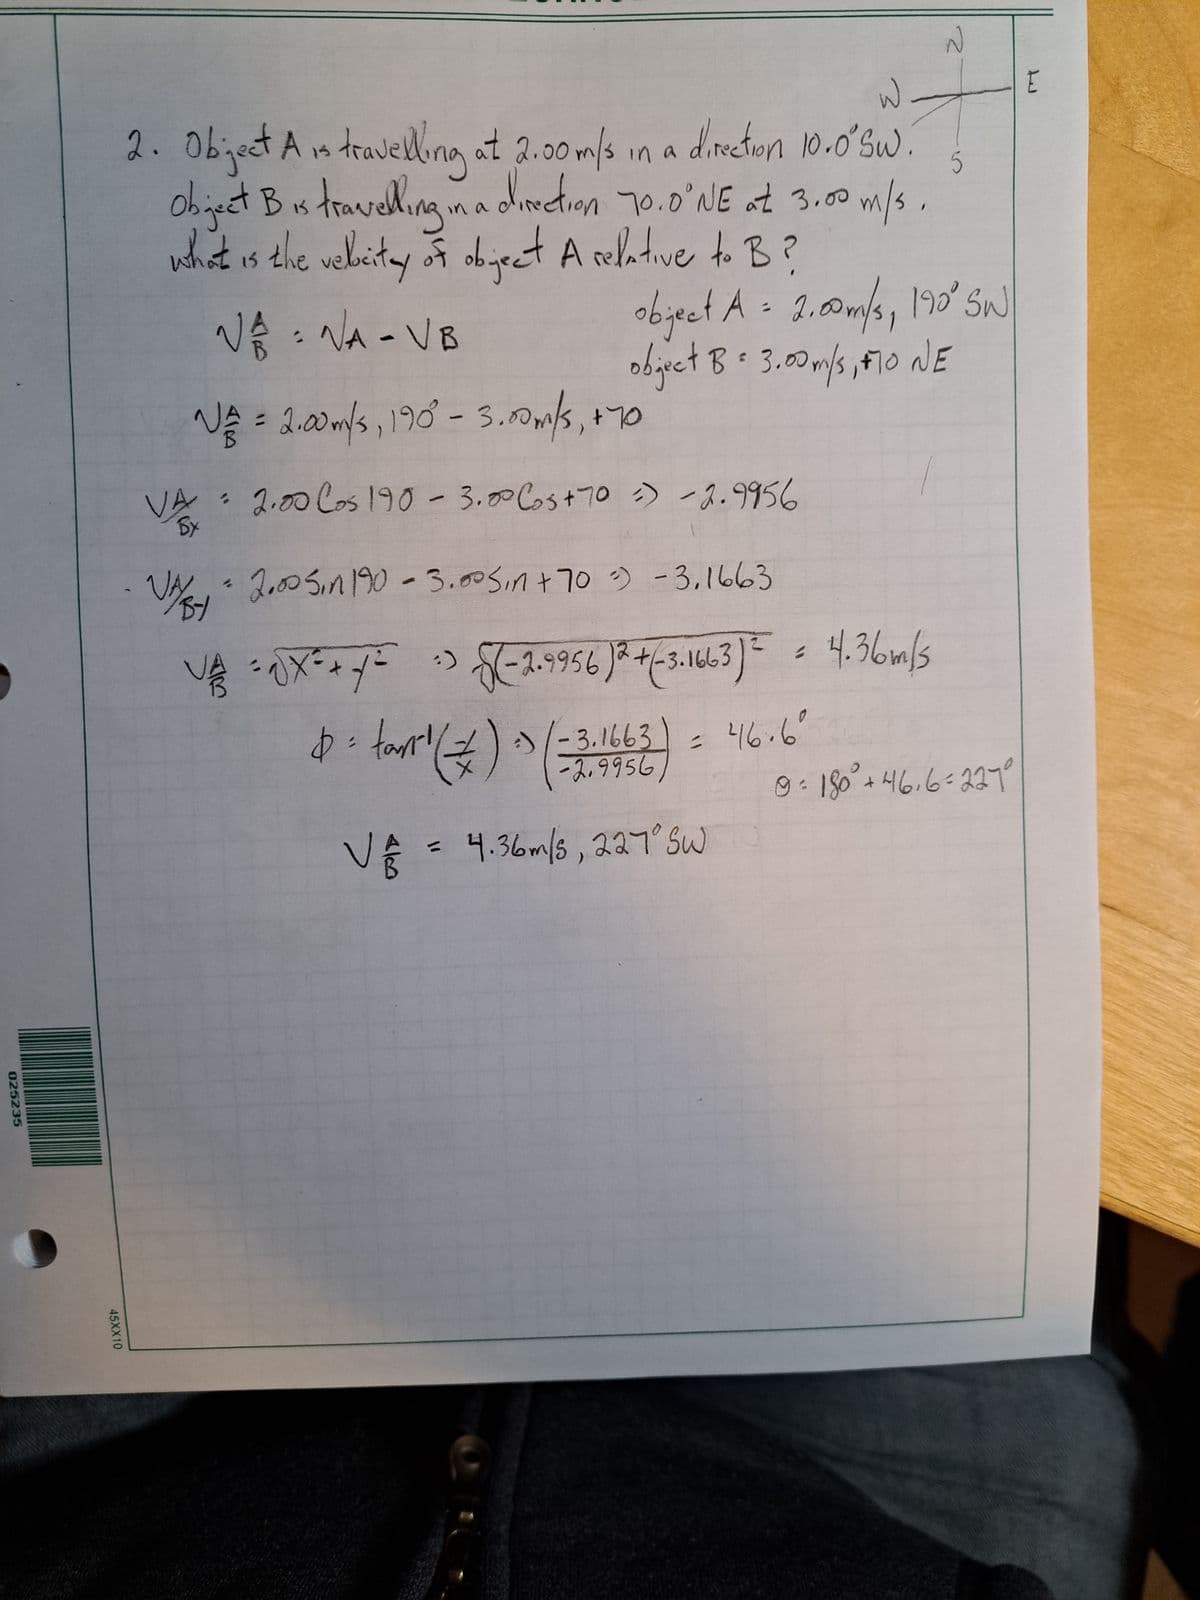 N
W E
S
2. Object A is travelling at 2.00 m/s in a direction 10.0° SW.
Object B is travelling in a direction 70.0° NE at 3.00 m/s.
what is the velocity of object A relative to B?
object A = 2.00m/s, 190° SW
V A/B = VA - VB
object B = 3.00m/s, +70 NE
V A/B = 2.00m/s, 190° - 3.00m/s, +70
VA/Bx = 2.00 Cos 190 - 3.00 Cos +70 => -2.9956
VA/By = 2.00 Sin 190 - 3.00 Sin +70 => -3.1663
V A/B = √x²+y² => √(-2.9956)²+(-3.1663)² = 4.36m/s
Φ = tan⁻¹(y/x) => (-3.1663/-2.9956) = 46.6°
θ = 180° + 46.6 = 227°
V A/B = 4.36m/s, 227° SW
025235
45XX10